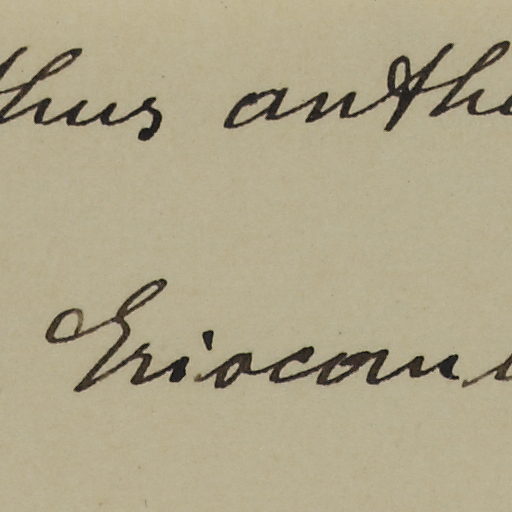 thus anthe
Eriocau